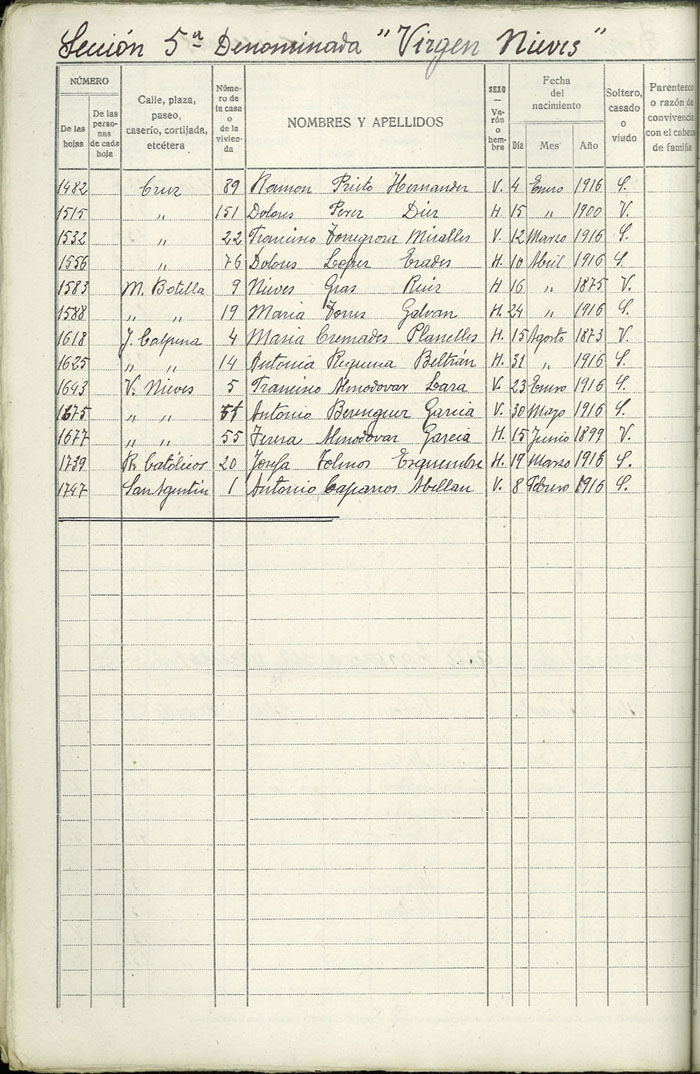 Sección 5ª Denominada "Virgen Nieves"
NÚMERO
De las hojas
De las personas de cada hoja
Calle, plaza, paseo, caserío, cortijada, etcétera
Número de la casa o de la vivienda
NOMBRES Y APELLIDOS
SEXO — Varón o hembra
Fecha del nacimiento
Día Mes Año
Soltero, casado o viudo
Parentesco o razón de convivencia con el cabeza de familia
1482 Cruz 89 Ramon Prieto Hernander V. 4 Enero 1916 S.
1515 " 151 Dolores Perez Diez H. 15 " 1900 V.
1532 " 22 Francisco Torregrosa Miralles V. 12 Marzo 1916 S.
1556 " 76 Dolores Lopez Erades H. 10 Abril 1916 S.
1583 M. Botella 9 Nieves Gras Ruiz H 16 " 1875 V.
1588 " " 19 Maria Torres Galvan H. 24 " 1916 S.
1618 J. Calpena 4 Maria Cremades Planelles H. 15 Agosto 1873 V.
1625 " " 14 Antonia Requena Beltrán H. 31 " 1916 S.
1643 V. Nieves 5 Francisco Almodovar Lara V. 23 Enero 1916 S.
1675 " " 51 Antonio Berenguer Garcia V. 30 Mayo 1916 S.
1677 " " 55 Teresa Almodovar Garcia H. 15 Junio 1899 V.
1739 R. Católicos 20 Josefa Tolmos Esquembre H. 19 Marzo 1916 S.
1747 San Agustín 1 Antonio Caparros Abellan V. 8 Febrero 1916 S.